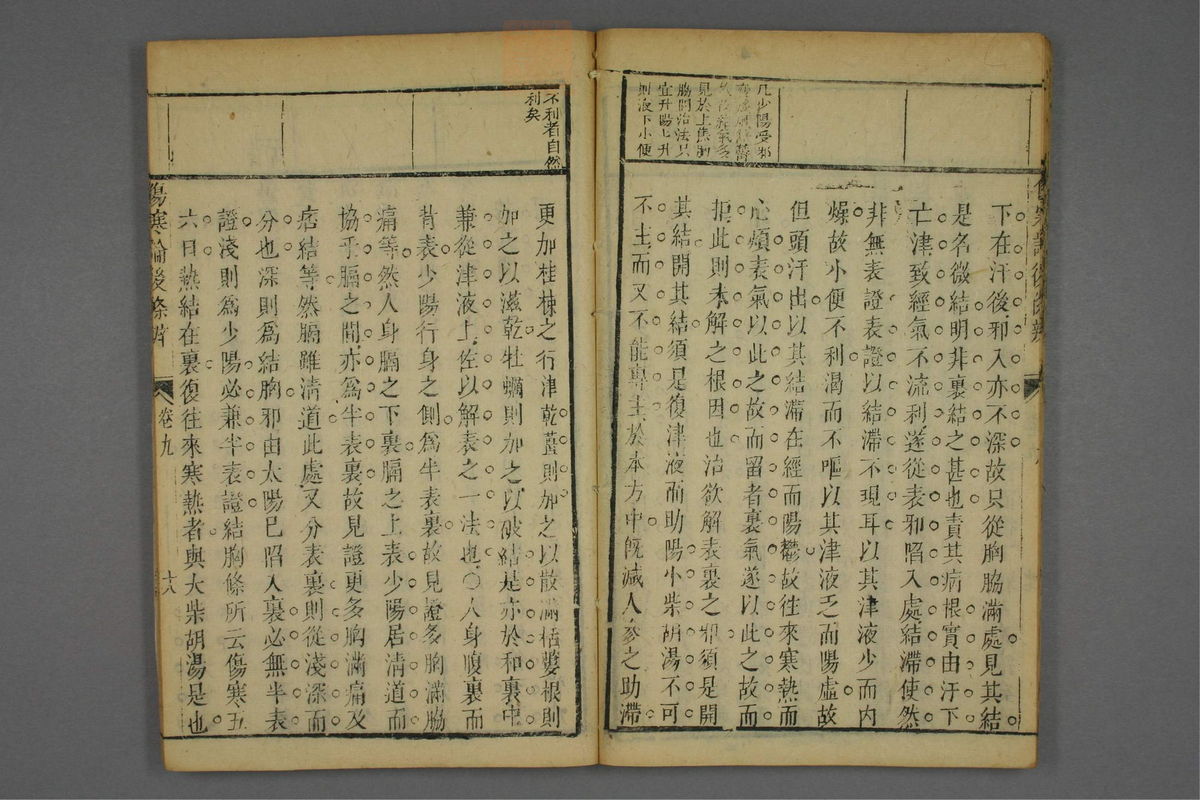 凡少陽受邪
見於上焦胸
脇間治法只
宜升陽上升
則液下小便
下在汗後邪入亦不深故只從胸脇滿處見其結
是名微結明非裏結之甚也責其病根實由汗下
亡津致經氣不流利遂從表邪陷入處結滯使然
非無表證表證以結滯不現耳以其津液少而內
燥故小便不利渴而不嘔以其津液乏而陽虛故
但頭汗出以其結滯在經而陽鬱故往來寒熱而
心煩表氣以此之故而留者裏氣遂以此之故而
拒此則未解之根因也治欲解表裏之邪須是開
其結開其結須是復津液而助陽小柴胡湯不可
不主而又不能專主於本方中旣減人參之助滯
不利者自然
利矣
更加桂枝之行津乾薑則加之以散滿栝蔞根則
加之以滋乾牡蠣則加之以破結是亦於和裏中
兼從津液上佐以解表之一法也○人身腹裏而
背表少陽行身之側爲半表裏故見證多胸滿脇
痛等然人身膈之下裏膈之上表少陽居清道而
協乎膈之間亦爲半表裏故見證更多胸滿痛及
痞結等然膈雖清道此處又分表裏則從淺深而
分也深則爲結胸邪由太陽已陷入裏必無半表
證淺則爲少陽必兼半表證結胸條所云傷寒五
六日熱結在裏復往來寒熱者與大柴胡湯是也
傷寒論後條辨
卷九
十八